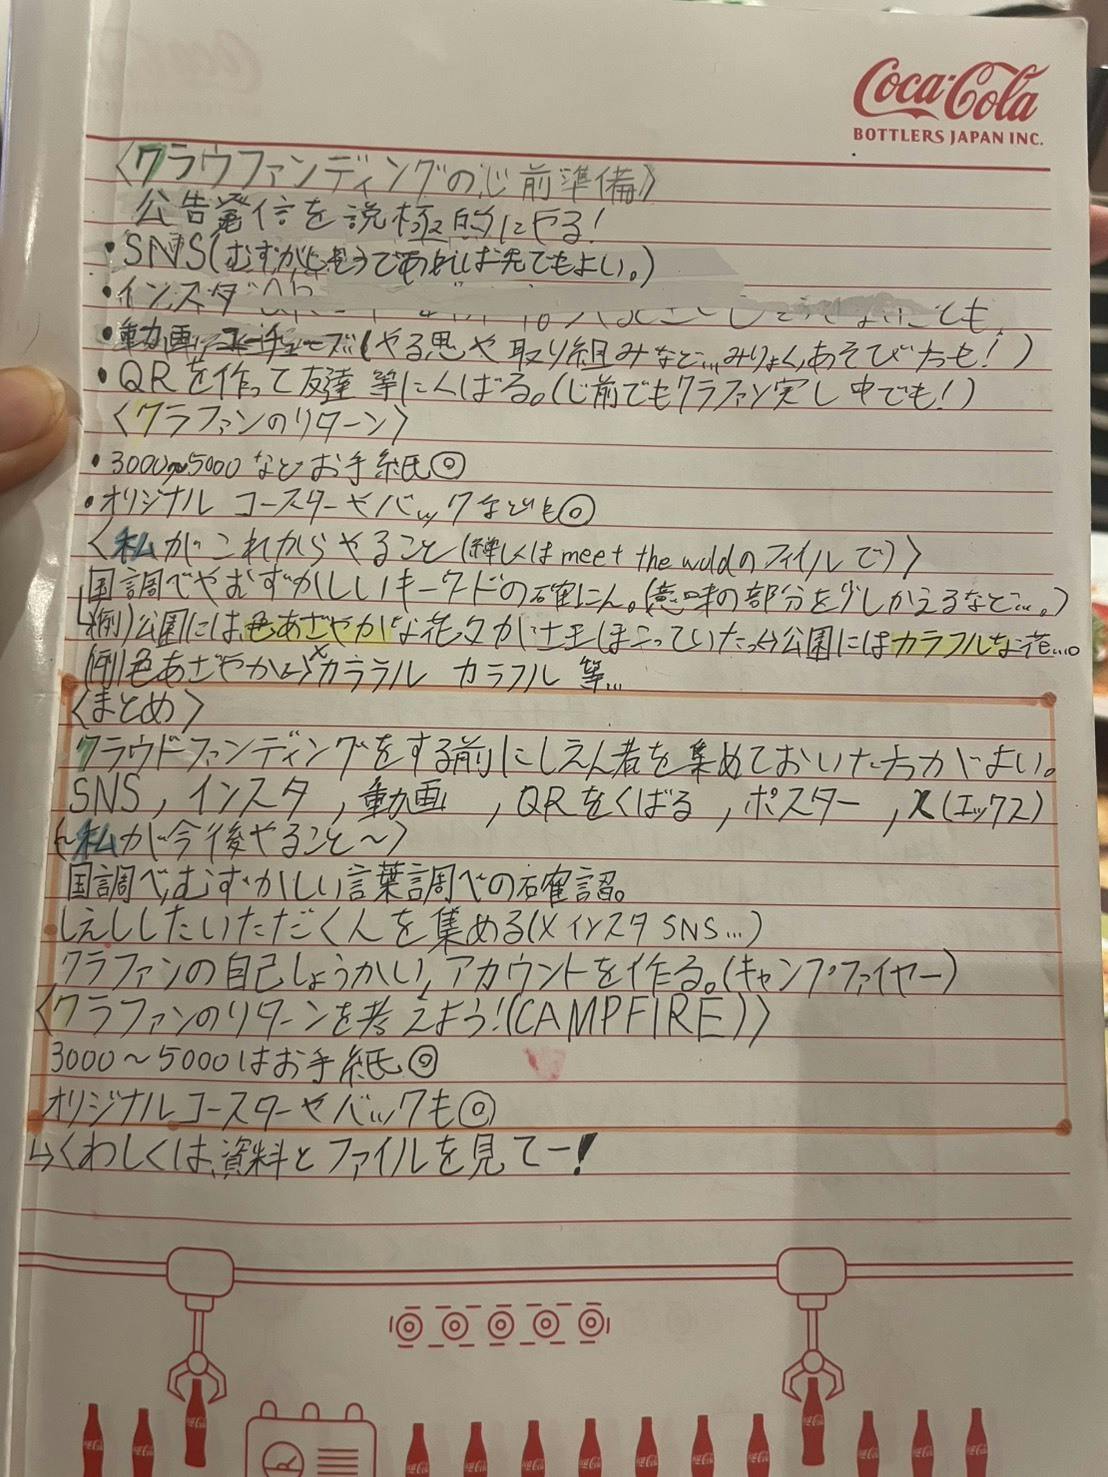 Coca-Cola
BOTTLERS JAPAN INC.
〈クラウファンディングのじ前準備〉
公告発信を説極的にやる！
・SNS(むずがじそうであれば先でもよい。)
・インスタ
・動画 ユーチューブ(やる思や取り組みなど...みりょく,あそびたも！)
・QRを作って友達等にくばる。(じ前でもクラファン実し中でも！)
〈クラファンのリターン〉
・3000〜5000などお手紙◎
・オリジナルコースターやバックなども◎
〈私がこれからやること(詳しくはmeet the woldのファイルで)〉
国調べやむずかしいキーワドの確にん。(意味の部分を少しかえるなど...。)
↳(例)公園には色あざやかな花々が土王ほこっていた→公園にはカラフルな花...。
(例)色あざやか→カララル カラフル 等...
〈まとめ〉
クラウドファンディングをする前にしえん者を集めておいた方がよい。
SNS,インスタ,動画,QRをくばる,ポスター,X(エックス)
〈〜私が今後やること〜〉
国調べ,むずかしい言葉調べの確認。
しえししたいただくんを集める(X インスタ SNS...)
クラファンの自己しょうかい,アカウントを作る。(キャンプファイヤー)
〈クラファンのリターンを考えよう！(CAMPFIRE)〉
3000〜5000はお手紙◎
オリジナルコースターやバックも◎
↳くわしくは,資料とファイルを見てー！